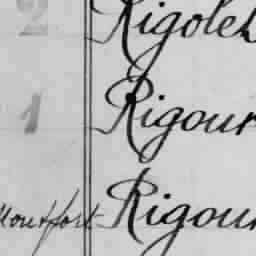 2 Rigolet
1 Rigour
Montfort Rigour